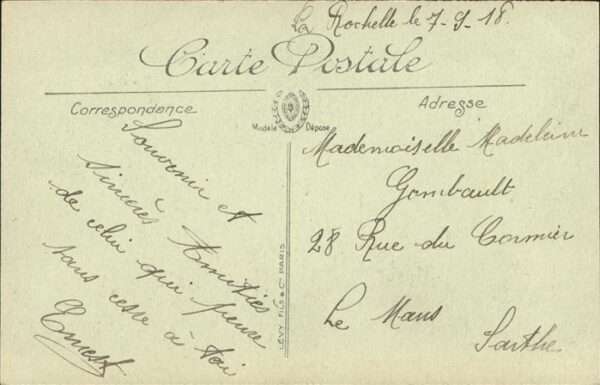 La Rochelle le 7-9-18.
Carte Postale
Correspondance
Adresse
Modèle Déposé
Souvenir et
sincères Amitiés
de celui qui pense
sans cesse à toi
Ernest
LEVY FILS & Cie PARIS
Mademoiselle Madeleine
Gombault
28 Rue du Cormier
Le Mans
Sarthe